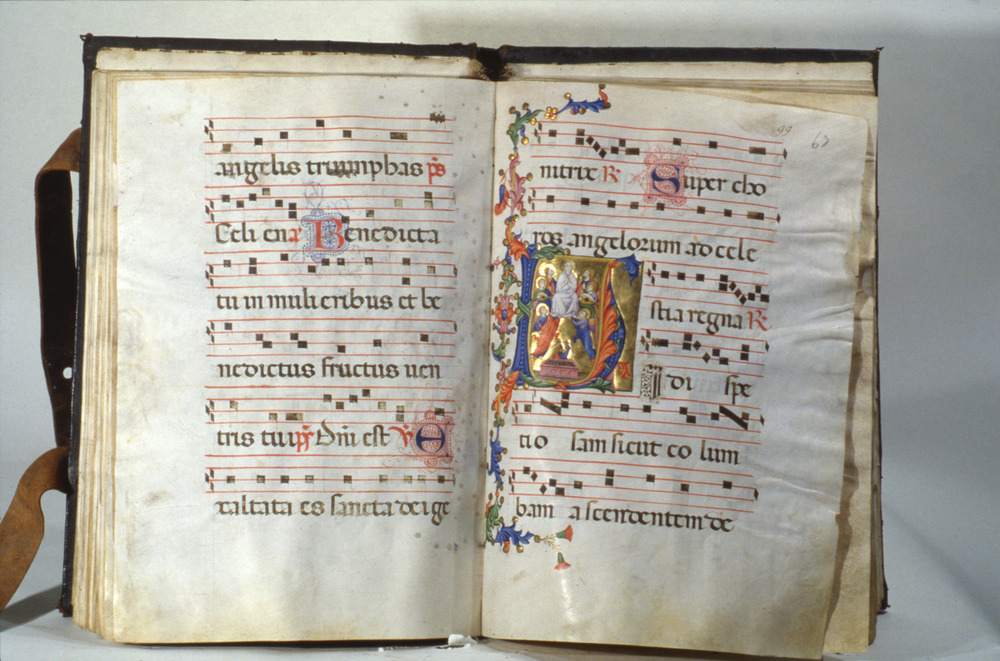 angelis triumphas ps
Celi enar Benedicta
tu in mulieribus et be
nedictus fructus uen
tris tui ps Dñi est V E
xaltata es sancta dei ge
99 67
nitrix R Super cho
ros angelorum ad cele
stia regna R
V I di spe
tio sam sicut co lum
bam ascendentem de